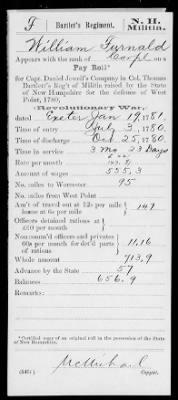 F | Bartlett's Regiment, | N. H. Militia.
William Furnald
Appears with the rank of Corpl on a
Pay Roll*
for Capt. Daniel Jewell's Company in Col. Thomas
Bartlett's Reg't of Militia raised by the State
of New Hampshire for the defence of West
Point, 1780,
(Revolutionary War,)
dated Exeter Jan 19, 1781.
Time of entry July 3, 1780.
Time of discharge Oct 25, 1780.
Time in service 3 Mo 23 Days
Rate per month
Amount of wages 535,3
No. miles to Worcester 95
No. miles from West Point
Am't of travel out at 12s per mile
home at 6s per mile 147
Officers detained rations at
£10 per month
Noncom'd officers and privates
60s per month for det'd parts
of rations 11,16
Whole amount 713,9
Advance by the State 57
Balance 656,9
Remarks:
*Certified copy of an original roll in the possession of the State
of New Hampshire.
McMichael
Copyist.